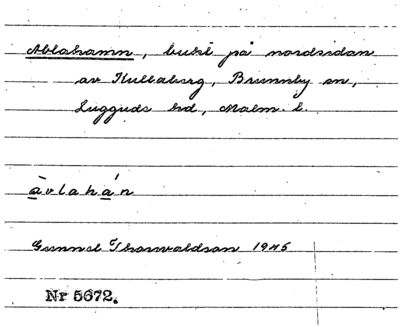 Ablahamn, bukt på nordsidan
av Kullaberg, Brunnby sn,
Luggude hd, Malm. l.
àvlahán
Gunnel Thorwaldson 1945
Nr 5672.